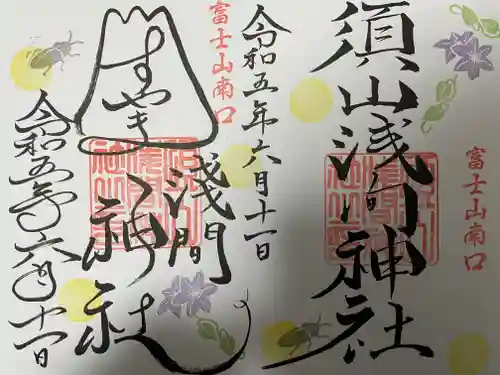 富士山南口
須山浅間神社
令和五年六月十一日
富士山南口
すやま
浅間
神社
令和五年六月十一日